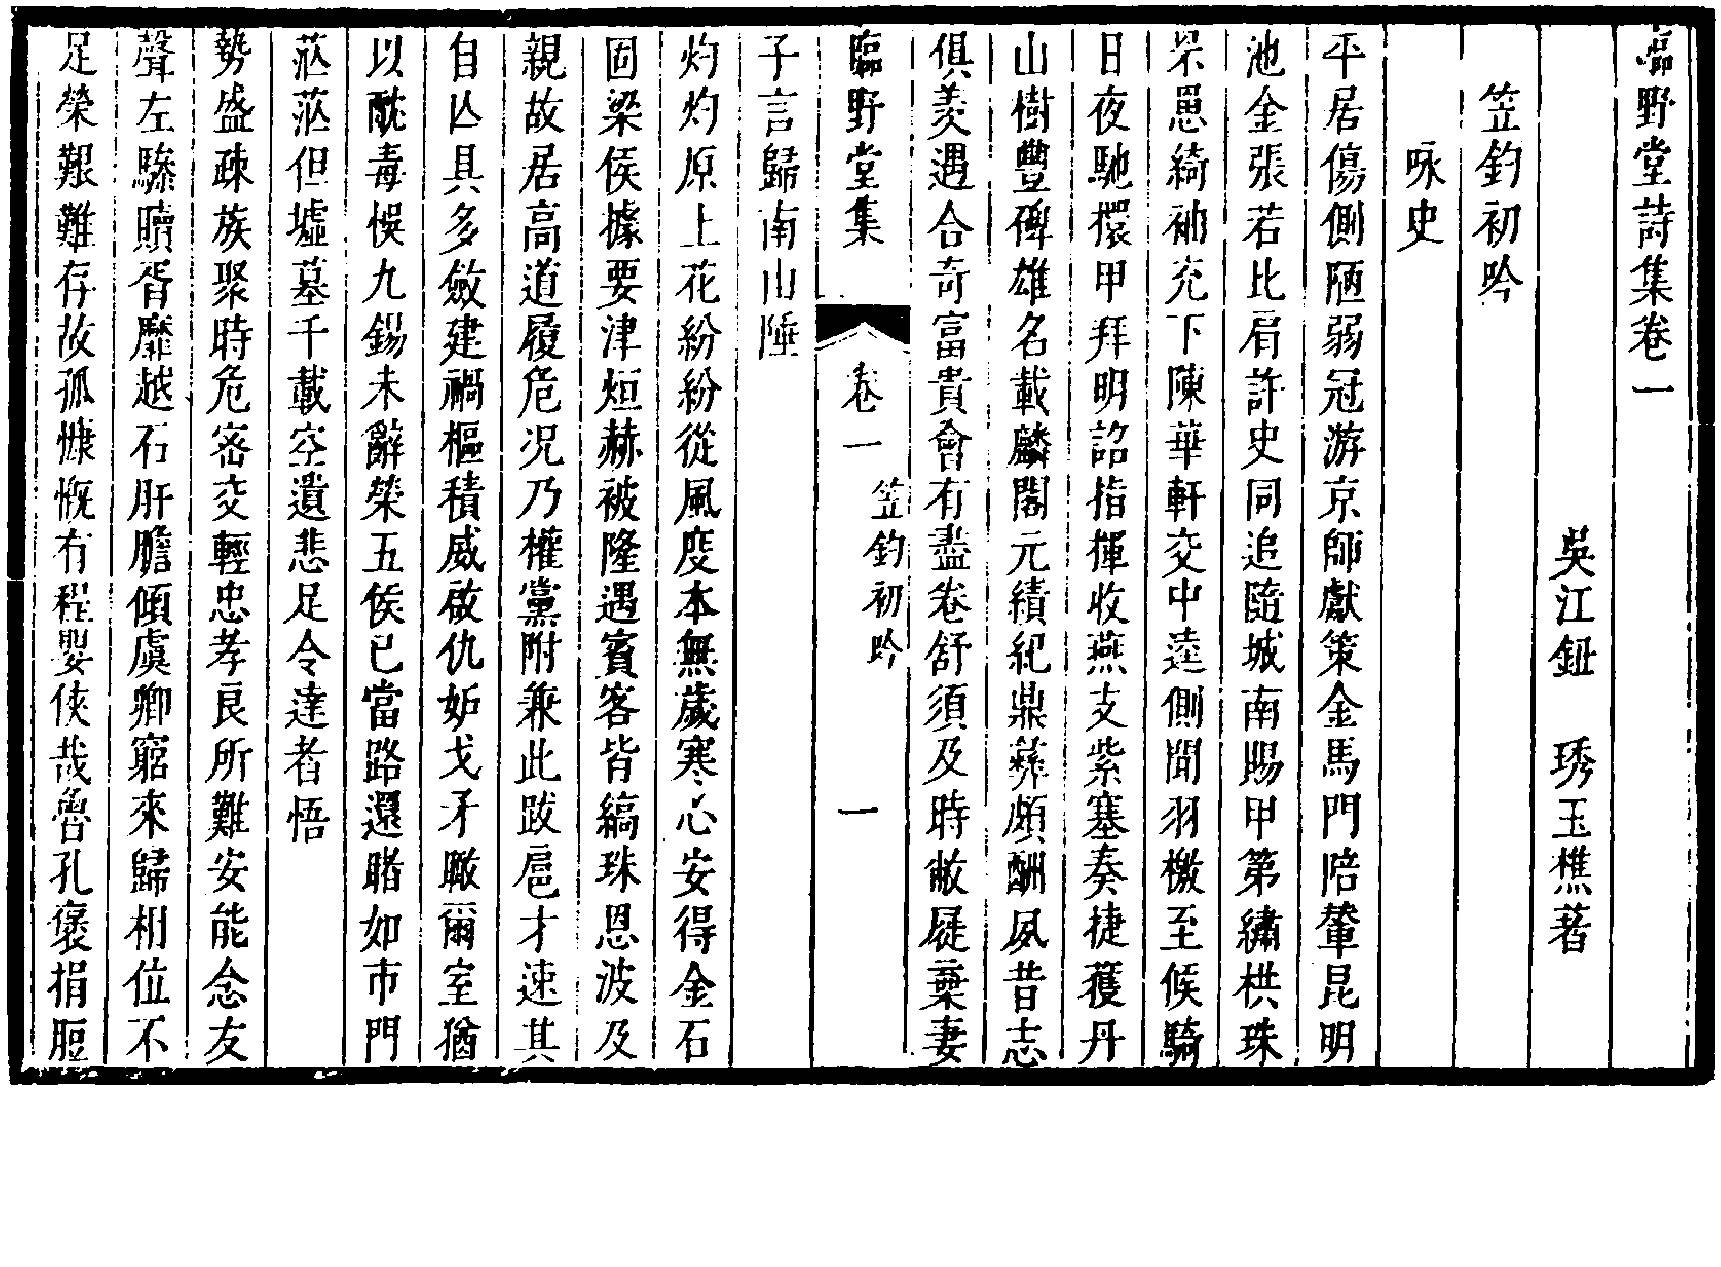 臨野堂詩集卷一
吳江鈕　琇玉樵著
笠釣初吟
咏史
平居傷側陋弱冠游京師獻策金馬門陪輦昆明
池金張若比肩許史同追隨城南賜甲第繡栱珠
罘罳綺袖充下陳華軒交中逵側聞羽檄至候騎
日夜馳擐甲拜明詔指揮收燕支紫塞奏捷獲丹
山樹豐碑雄名載麟閣元績紀鼎彞頗酬夙昔志
俱羨遇合奇富貴會有盡卷舒須及時敝屣棄妻
臨野堂集　卷一　笠釣初吟　一
子言歸南山陲
灼灼原上花紛紛從風度本無歲寒心安得金石
固梁侯據要津烜赫被隆遇賓客皆縞珠恩波及
親故居高道履危况乃權黨附兼此跋扈才速其
自亾具多斂建禍樞積威啟仇妒戈矛瞰爾室猶
以酖毒悞九錫未辭榮五侯已當路還賭如市門
茫茫但墟墓千載空遺悲足令達者悟
勢盛疎族聚時危密交輕忠孝良所難安能念友
聲左驂贖胥靡越石肝膽傾虞卿窮來歸相位不
足榮艱難存故孤慷慨有程嬰俠哉魯孔褒捐脰